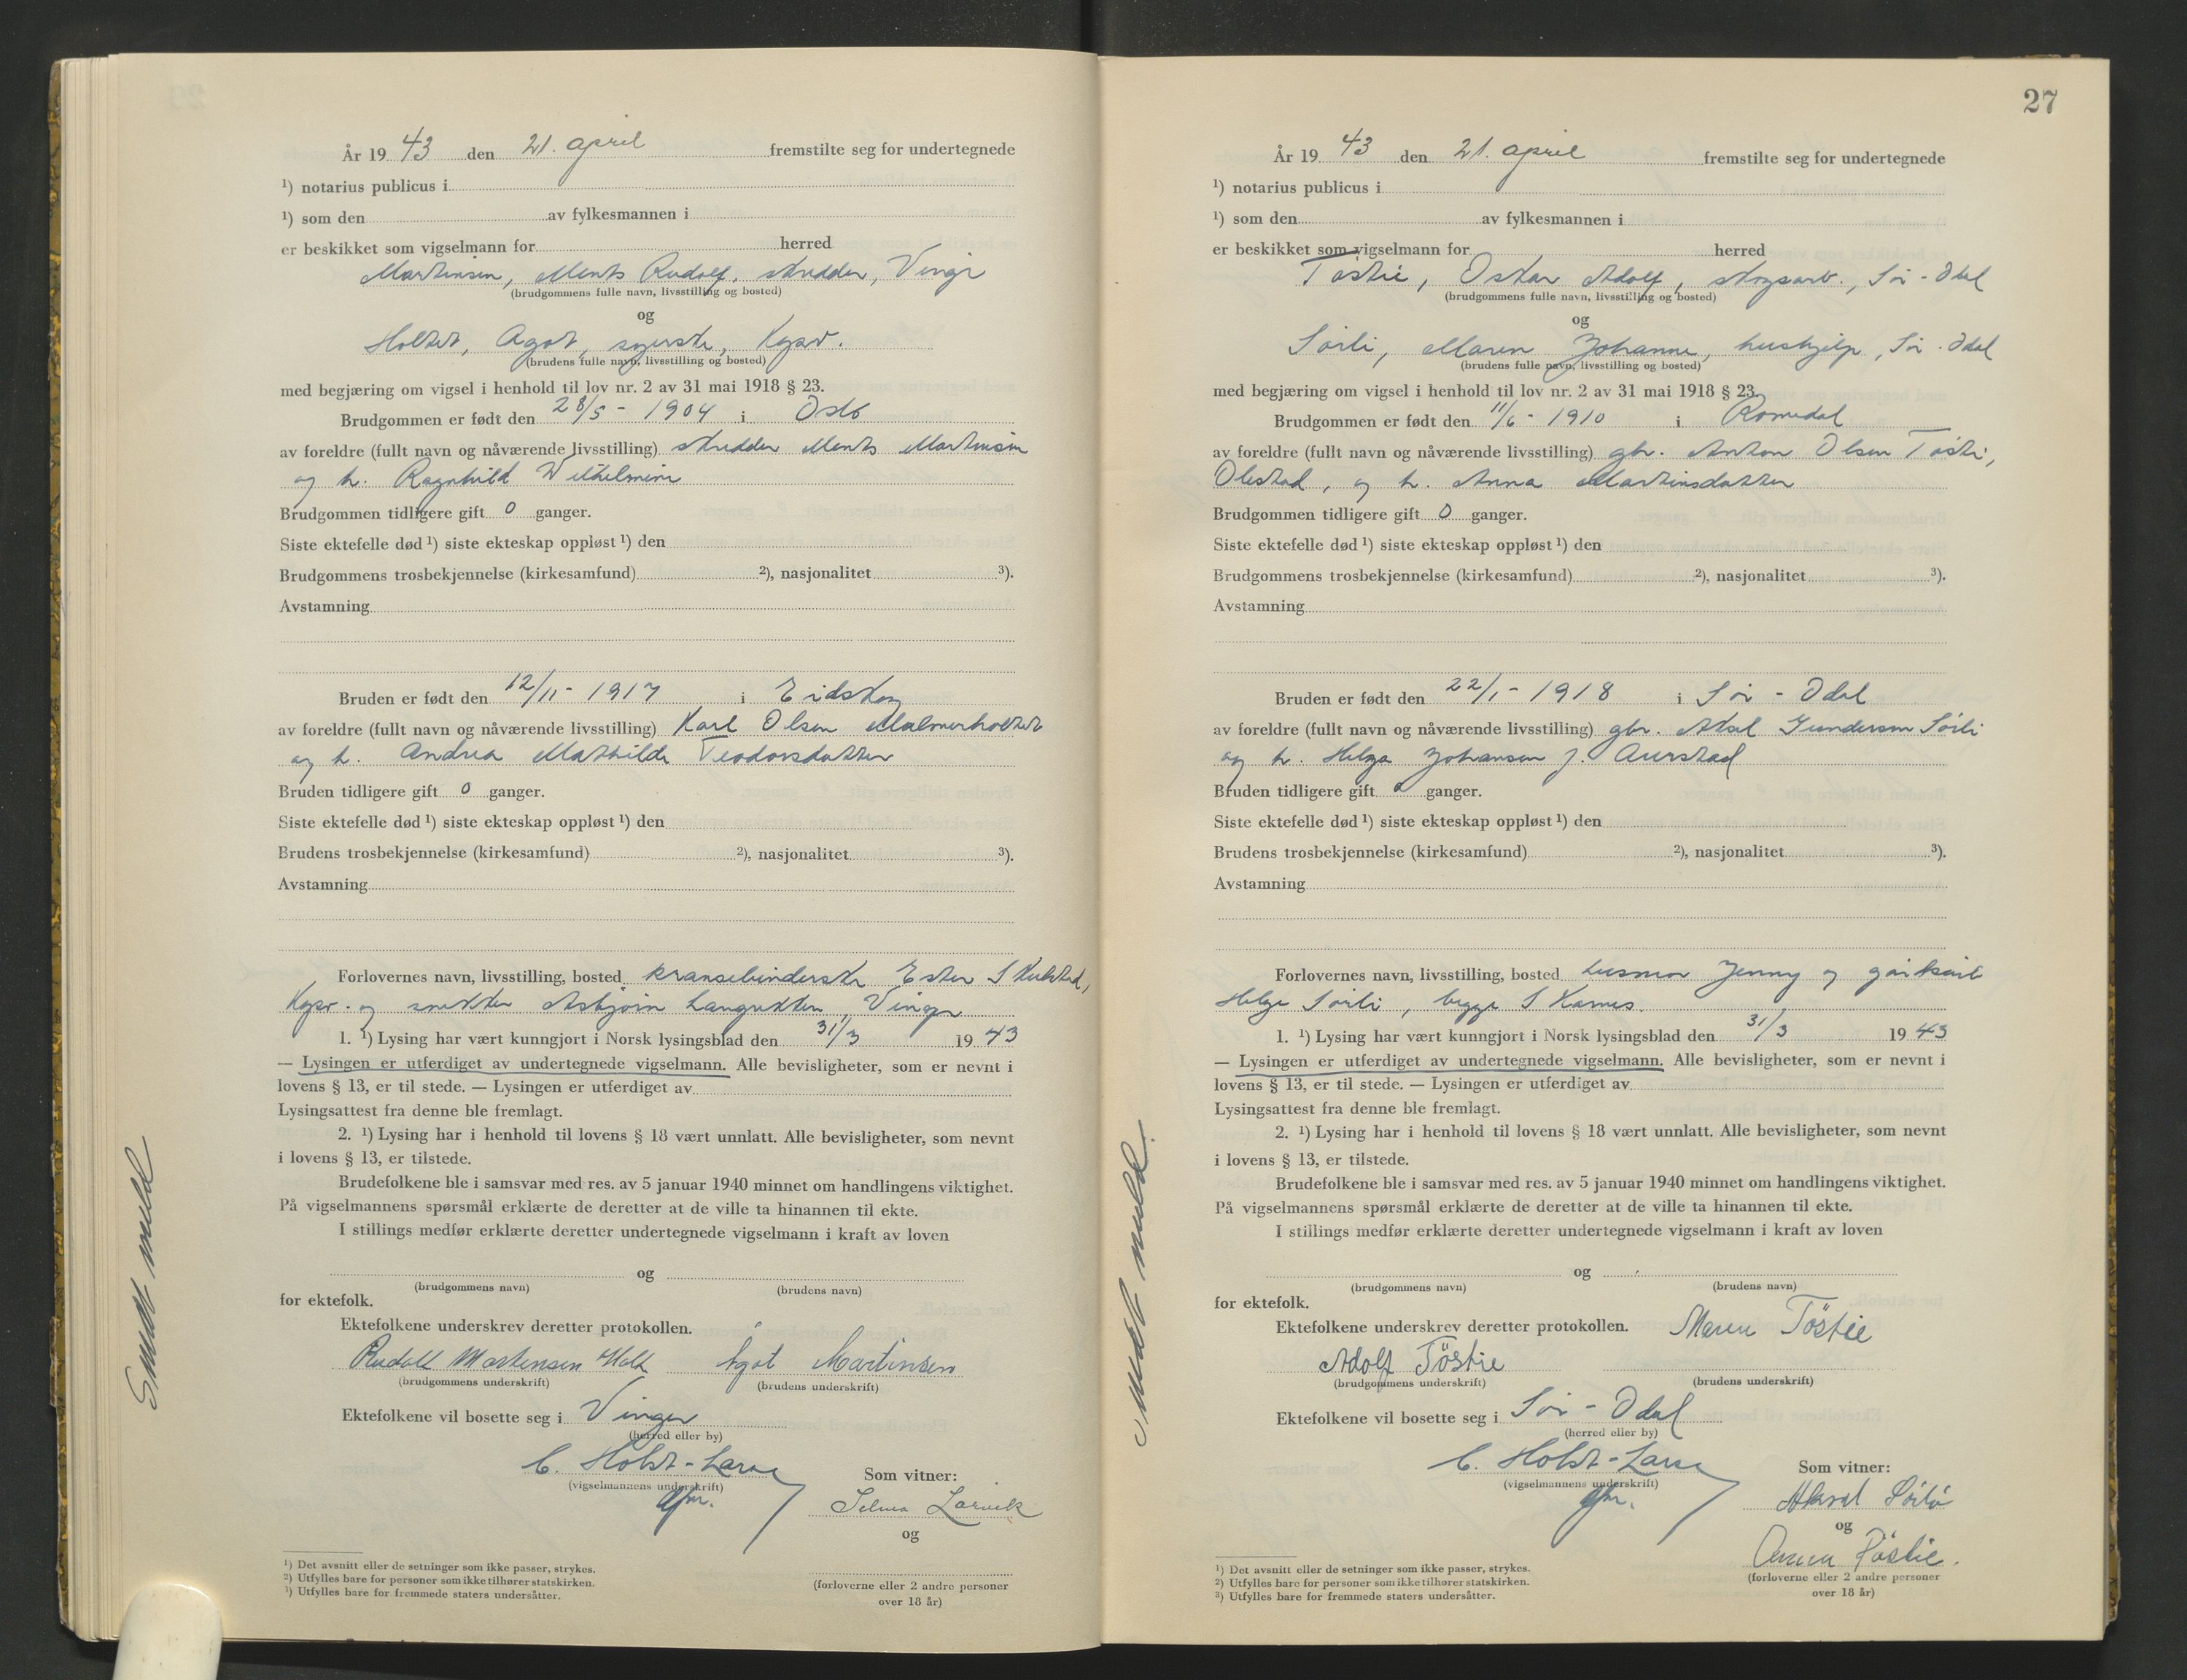 År 1943 den 21. april fremstilte seg for undertegnede
¹) notarius publicus i
¹) som den av fylkesmannen i
er beskikket som vigselmann for herred
Martinsen, Ments Rudolf, skredder, Vinger
(brudgommens fulle navn, livsstilling og bosted)
og
Holtet, Agot, syerske, Kgsv.
(brudens fulle navn, livsstilling og bosted)
med begjæring om vigsel i henhold til lov nr. 2 av 31 mai 1918 § 23.
Brudgommen er født den 28/5 - 1904 i Oslo
av foreldre (fullt navn og nåværende livsstilling) skredder Ments Martinsen
og h. Ragnhild Wilhelmine
Brudgommen tidligere gift 0 ganger.
Siste ektefelle død ¹) siste ekteskap oppløst ¹) den
Brudgommens trosbekjennelse (kirkesamfund) ²), nasjonalitet ³).
Avstamning
Bruden er født den 12/11 - 1917 i Eidskog
av foreldre (fullt navn og nåværende livsstilling) Karl Olsen Malmerholtet
og h. Andrea Mathilde Teodorsdatter
Bruden tidligere gift 0 ganger.
Siste ektefelle død ¹) siste ekteskap oppløst ¹) den
Brudens trosbekjennelse (kirkesamfund) ²), nasjonalitet ³).
Avstamning
Forlovernes navn, livsstilling, bosted kransebinderske Ester Skulstad,
Kgsv. og snekker Asbjørn Langvekken, Vinger
1. ¹) Lysing har vært kunngjort i Norsk lysingsblad den 31/3 1943
— Lysingen er utferdiget av undertegnede vigselmann. Alle bevisligheter, som er nevnt i
lovens § 13, er til stede. — Lysingen er utferdiget av
Lysingsattest fra denne ble fremlagt.
2. ¹) Lysing har i henhold til lovens § 18 vært unnlatt. Alle bevisligheter, som nevnt
i lovens § 13, er tilstede.
Brudefolkene ble i samsvar med res. av 5 januar 1940 minnet om handlingens viktighet.
På vigselmannens spørsmål erklærte de deretter at de ville ta hinannen til ekte.
I stillings medfør erklærte deretter undertegnede vigselmann i kraft av loven
og
(brudgommens navn) (brudens navn)
for ektefolk.
Ektefolkene underskrev deretter protokollen.
Rudolf Martensen Holt Agot Martinsen
(brudgommens underskrift) (brudens underskrift)
Ektefolkene vil bosette seg i Vinger
(herred eller by)
C. Holst-Larse
(vigselmannens underskrift)
Som vitner:
Selma Larvik
og
(forloverne eller 2 andre personer
over 18 år)
¹) Det avsnitt eller de setninger som ikke passer, strykes.
²) Utfylles bare for personer som ikke tilhører statskirken.
³) Utfylles bare for fremmede staters undersåtter.
Smidt meld
27
År 1943 den 21. april fremstilte seg for undertegnede
¹) notarius publicus i
¹) som den av fylkesmannen i
er beskikket som vigselmann for herred
Tøstie, Oskar Adolf, skogsarb., Sør-Odal
(brudgommens fulle navn, livsstilling og bosted)
og
Sørli, Maren Johanne, hushjelp, Sør-Odal
(brudens fulle navn, livsstilling og bosted)
med begjæring om vigsel i henhold til lov nr. 2 av 31 mai 1918 § 23.
Brudgommen er født den 11/6 - 1910 i Romedal
av foreldre (fullt navn og nåværende livsstilling) gbr. Anton Olsen Tøsti,
Olestad, og h. Anna Martinsdatter
Brudgommen tidligere gift 0 ganger.
Siste ektefelle død ¹) siste ekteskap oppløst ¹) den
Brudgommens trosbekjennelse (kirkesamfund) ²), nasjonalitet ³).
Avstamning
Bruden er født den 22/1 - 1918 i Sør-Odal
av foreldre (fullt navn og nåværende livsstilling) gbr. Aksel Gundersen Sørli
og h. Helga Johansen f. Aurstad
Bruden tidligere gift 0 ganger.
Siste ektefelle død ¹) siste ekteskap oppløst ¹) den
Brudens trosbekjennelse (kirkesamfund) ²), nasjonalitet ³).
Avstamning
Forlovernes navn, livsstilling, bosted husmor Jenny og
Helge Sørli, begge Skarnes.
1. ¹) Lysing har vært kunngjort i Norsk lysingsblad den 31/3 1943
— Lysingen er utferdiget av undertegnede vigselmann. Alle bevisligheter, som er nevnt i
lovens § 13, er til stede. — Lysingen er utferdiget av
Lysingsattest fra denne ble fremlagt.
2. ¹) Lysing har i henhold til lovens § 18 vært unnlatt. Alle bevisligheter, som nevnt
i lovens § 13, er tilstede.
Brudefolkene ble i samsvar med res. av 5 januar 1940 minnet om handlingens viktighet.
På vigselmannens spørsmål erklærte de deretter at de ville ta hinannen til ekte.
I stillings medfør erklærte deretter undertegnede vigselmann i kraft av loven
og
(brudgommens navn) (brudens navn)
for ektefolk.
Ektefolkene underskrev deretter protokollen. Maren Töstie
Adolf Töstie
(brudgommens underskrift) (brudens underskrift)
Ektefolkene vil bosette seg i Sør-Odal
(herred eller by)
C. Holst-Larse
(vigselmannens underskrift)
Som vitner:
Aksel Sörli
og
Anna Töstie.
(forloverne eller 2 andre personer
over 18 år)
¹) Det avsnitt eller de setninger som ikke passer, strykes.
²) Utfylles bare for personer som ikke tilhører statskirken.
³) Utfylles bare for fremmede staters undersåtter.